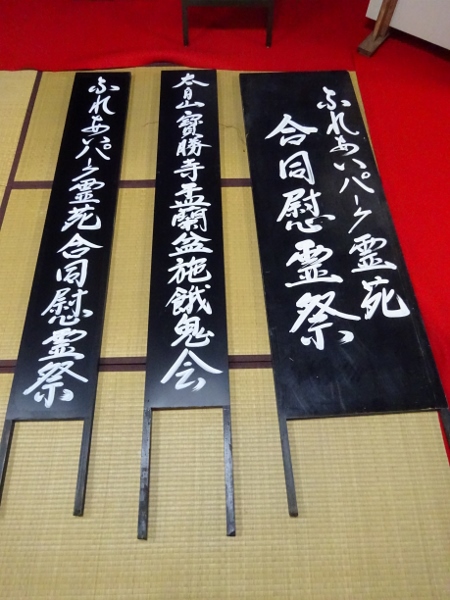 ふれあいパーク霊苑
合同慰霊祭
太白山寶勝寺盂蘭盆施餓鬼会
ふれあいパーク霊苑合同慰霊祭